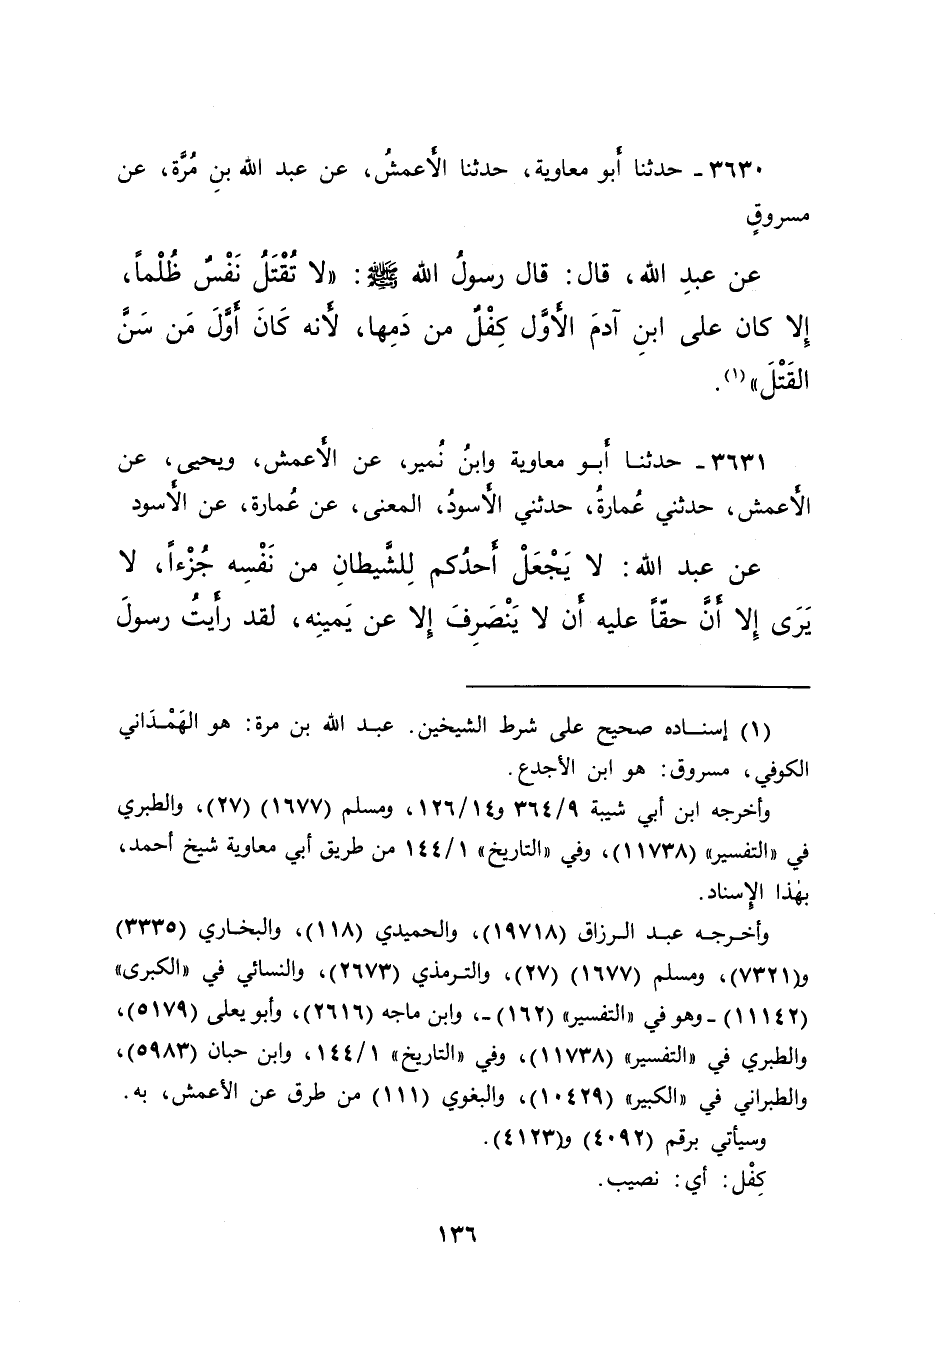 ٣٦٣٠ - حدثنا أَبو معاوية، حدثنا الأَعمشُ، عن عبد الله بنِ مُرَّة، عن
مسروقٍ
عن عبدِ الله، قال: قال رسولُ الله ﷺ: «لا تُقْتَلُ نَفْسٌ ظُلْماً،
إِلا كان على ابنِ آدمَ الأَوَّل كِفْلٌ من دَمِها، لأَنه كَانَ أَوَّلَ مَن سَنَّ
القَتْلَ»(١).
٣٦٣١ - حدثنا أَبو معاوية وابنُ نُمير، عن الأَعمش، ويحيى، عن
الأَعمش، حدثني عُمارةُ، حدثني الأَسودُ، المعنى، عن عُمارة، عن الأَسود
عن عبد الله: لا يَجْعَلْ أَحدُكم لِلشَّيطانِ من نَفْسِه جُزْءاً، لا
يَرَى إِلا أَنَّ حقّاً عليه أَن لا يَنْصَرِفَ إِلا عن يَمينِه، لقد رأَيتُ رسولَ
(١) إسناده صحيح على شرط الشيخين. عبد الله بن مرة: هو الهَمْدَاني
الكوفي، مسروق: هو ابن الأجدع.
وأخرجه ابن أبي شيبة ٣٦٤/٩ و١٢٦/١٤، ومسلم (١٦٧٧) (٢٧)، والطبري
في «التفسير» (١١٧٣٨)، وفي «التاريخ» ١٤٤/١ من طريق أبي معاوية شيخ أحمد،
بهٰذا الإِسناد.
وأخرجه عبد الرزاق (١٩٧١٨)، والحميدي (١١٨)، والبخاري (٣٣٣٥)
و(٧٣٢١)، ومسلم (١٦٧٧) (٢٧)، والترمذي (٢٦٧٣)، والنسائي في «الكبرى»
(١١١٤٢) - وهو في «التفسير» (١٦٢) -، وابن ماجه (٢٦١٦)، وأبو يعلى (٥١٧٩)،
والطبري في «التفسير» (١١٧٣٨)، وفي «التاريخ» ١٤٤/١، وابن حبان (٥٩٨٣)،
والطبراني في «الكبير» (١٠٤٢٩)، والبغوي (١١١) من طرق عن الأعمش، به.
وسيأتي برقم (٤٠٩٢) و(٤١٢٣).
كِفْل: أي: نصيب.
١٣٦